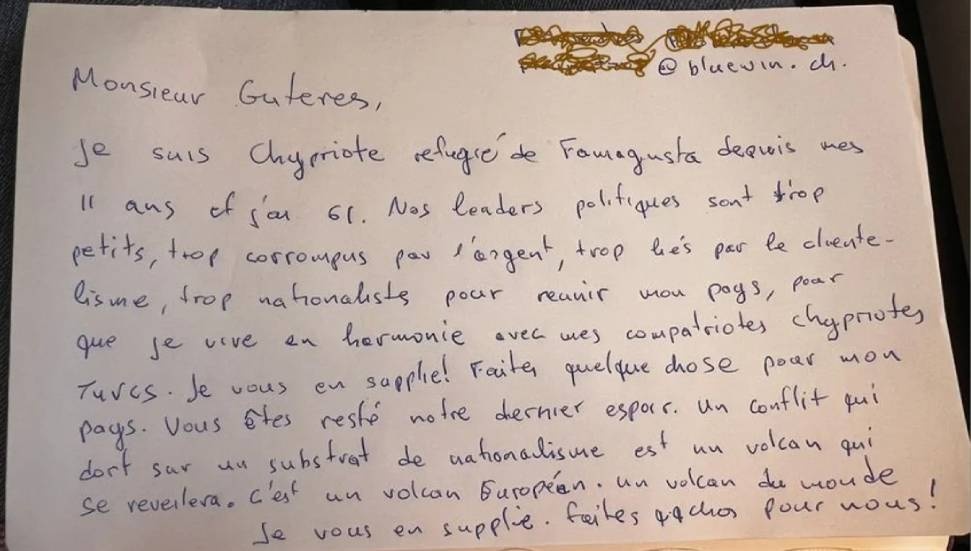 @bluewin.ch.
Monsieur Guteres,
Je suis Chypriote refugié de Famagusta depuis mes
11 ans et j'ai 61. Nos leaders politiques sont trop
petits, trop corrompus par l'argent, trop liés par le cliente-
lisme, trop nationalists pour reunir mon pays, pour
que je vive en harmonie avec mes compatriotes chypriotes
Turcs. Je vous en supplie! Faites quelque chose pour mon
pays. Vous êtes resté notre dernier espoir. Un conflit qui
dort sur un substrat de nationalisme est un volcan qui
se reveilera. C'est un volcan Européen. un volcan du monde
Je vous en supplie. Faites pour nous!